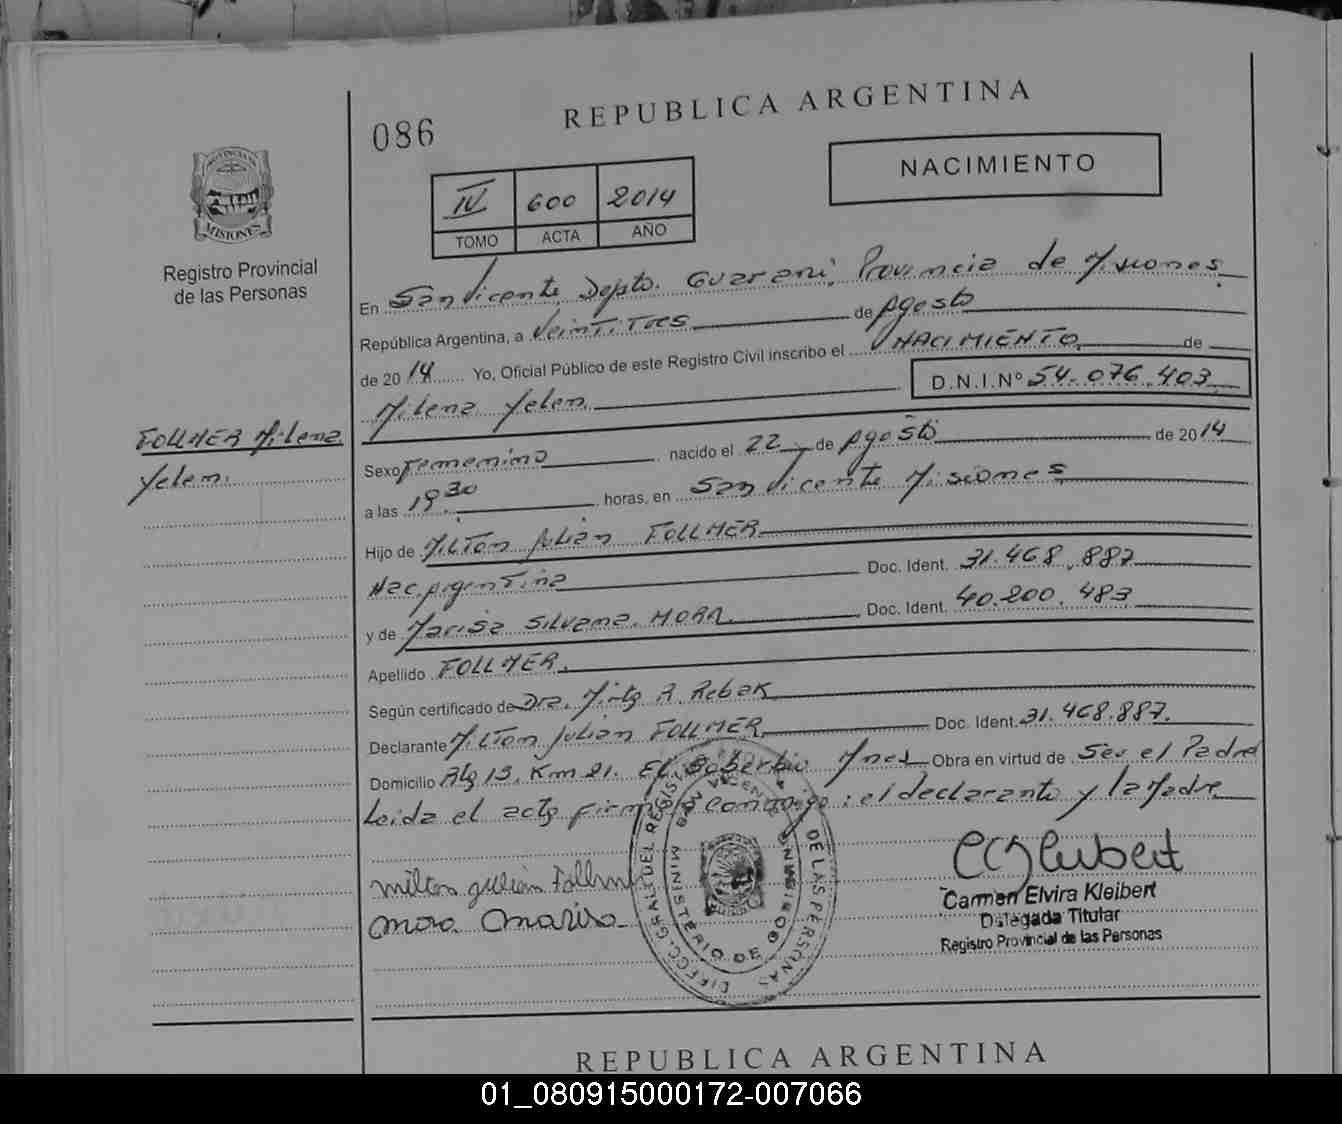 086
REPUBLICA ARGENTINA
NACIMIENTO
IV 600 2014
TOMO ACTA AÑO
PROVINCIA DE
MISIONES
Registro Provincial
de las Personas
En San Vicente Depto. Guarani, Provincia de Misiones
República Argentina, a Veintitres de Agosto
de 2014 Yo, Oficial Público de este Registro Civil inscribo el NACIMIENTO de
Milena Yelen D.N.I.Nº 54.076.403
FOLLMER Milena
Yelen.
Sexo Femenino nacido el 22 de Agosto de 2014
a las 19.30 horas, en San Vicente Misiones
Hijo de Milton Julian FOLLMER
Nac. Argentina Doc. Ident. 31.468.887
y de Marisa Silvana MORA Doc. Ident. 40.200.483
Apellido FOLLMER.
Según certificado de Dra. Mirta R. Rebak
Declarante Milton Julian FOLLMER Doc. Ident. 31.468.887.
Domicilio Rta 13. Km 21. El Soberbio Mnes Obra en virtud de Ser el Padre
Leida el acta firma conmigo: el declarante y la Madre
Milton Julian Follmer
Mora Marisa
DIRECC. GRAL. DEL REGISTRO DE LAS PERSONAS
MINISTERIO DE GOBIERNO
SAN VICENTE
Carmen Elvira Kleibert
Delegada Titular
Registro Provincial de las Personas
REPUBLICA ARGENTINA
01_080915000172-007066